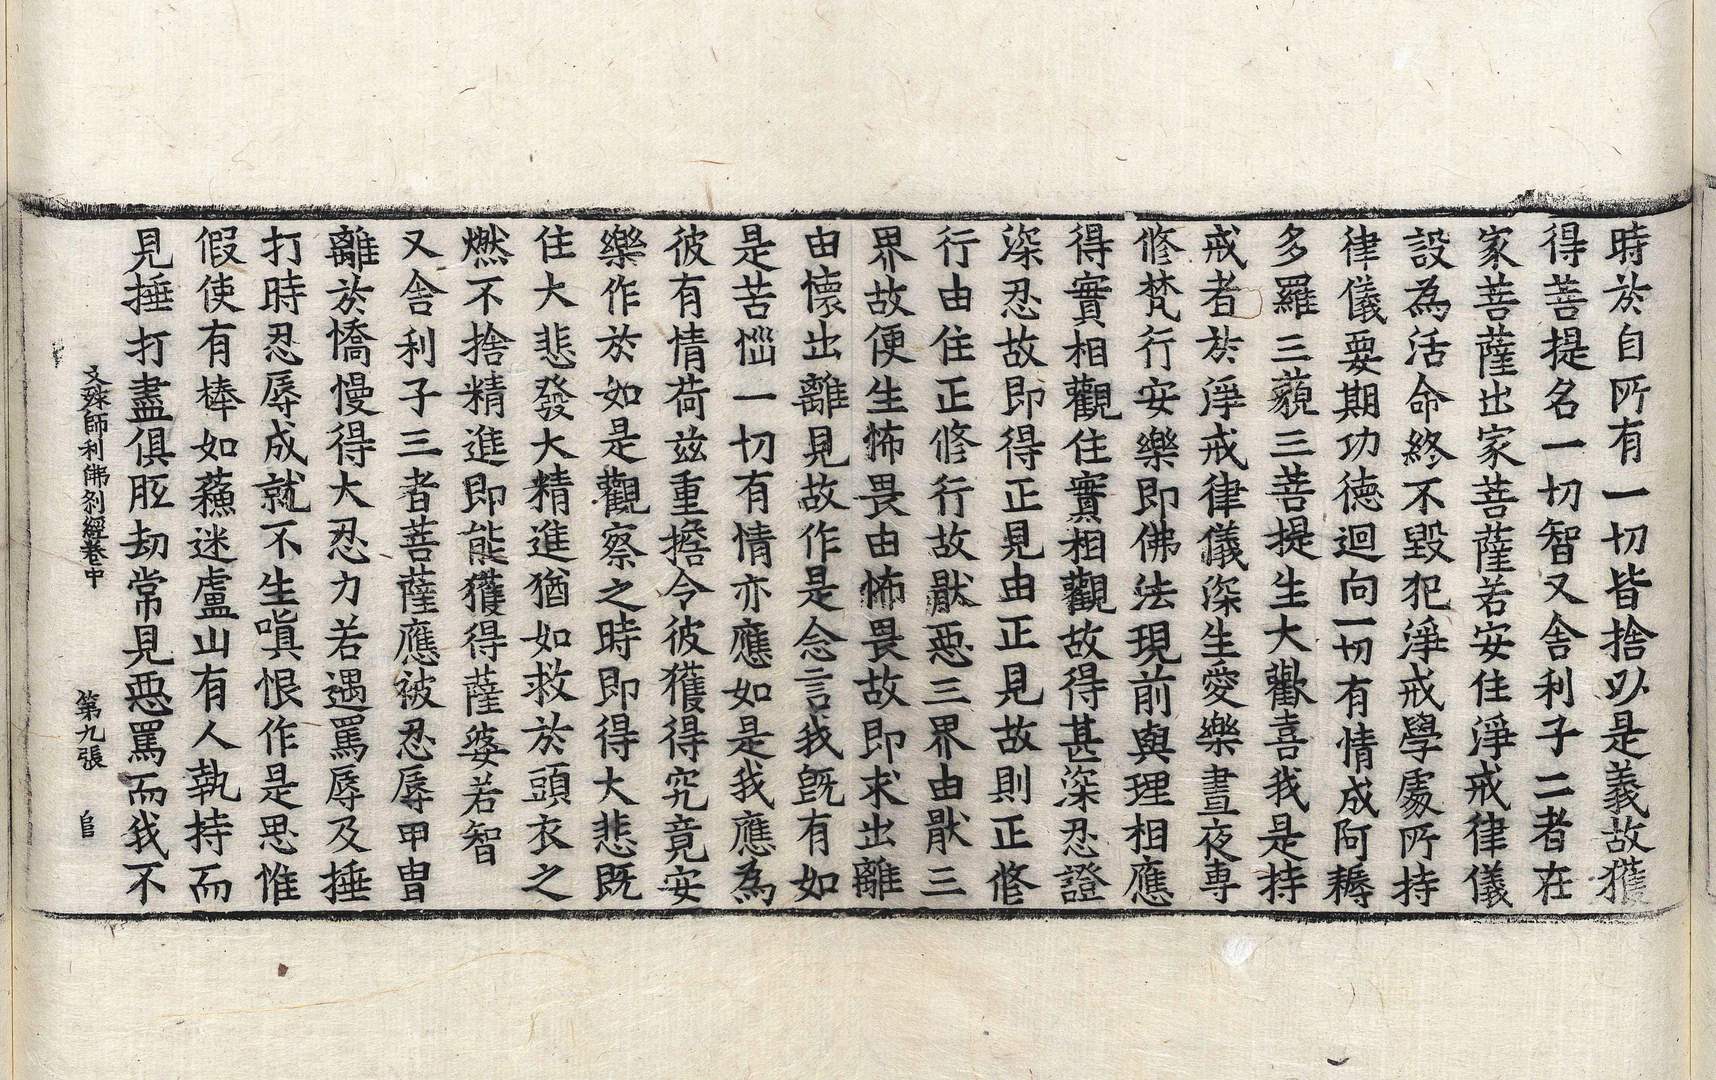 時於自所有一切皆捨以是義故獲
得菩提名一切智又舍利子二者在
家菩薩出家菩薩若安住淨戒律儀
設為活命終不毀犯淨戒學處所持
律儀要期功德迴向一切有情成阿耨
多羅三藐三菩提生大歡喜我是持
戒者於淨戒律儀深生愛樂晝夜專
修梵行安樂即佛法現前與理相應
得實相觀住實相觀故得甚深忍證
深忍故即得正見由正見故則正修
行由住正修行故猒惡三界由猒三
界故便生怖畏由怖畏故即求出離
由懷出離見故作是念言我旣有如
是苦惱一切有情亦應如是我應為
彼有情荷兹重擔令彼獲得究竟安
樂作於如是觀察之時即得大悲既
住大悲發大精進猶如救於頭衣之
燃不捨精進即能獲得薩婆若智
又舍利子三者菩薩應被忍辱甲冑
離於憍慢得大忍力若遇罵辱及捶
打時忍辱成就不生嗔恨作是思惟
假使有棒如蘓迷盧山有人執持而
見捶打盡俱胝劫常見惡罵而我不
文殊師利佛刹經卷中 第九張 官